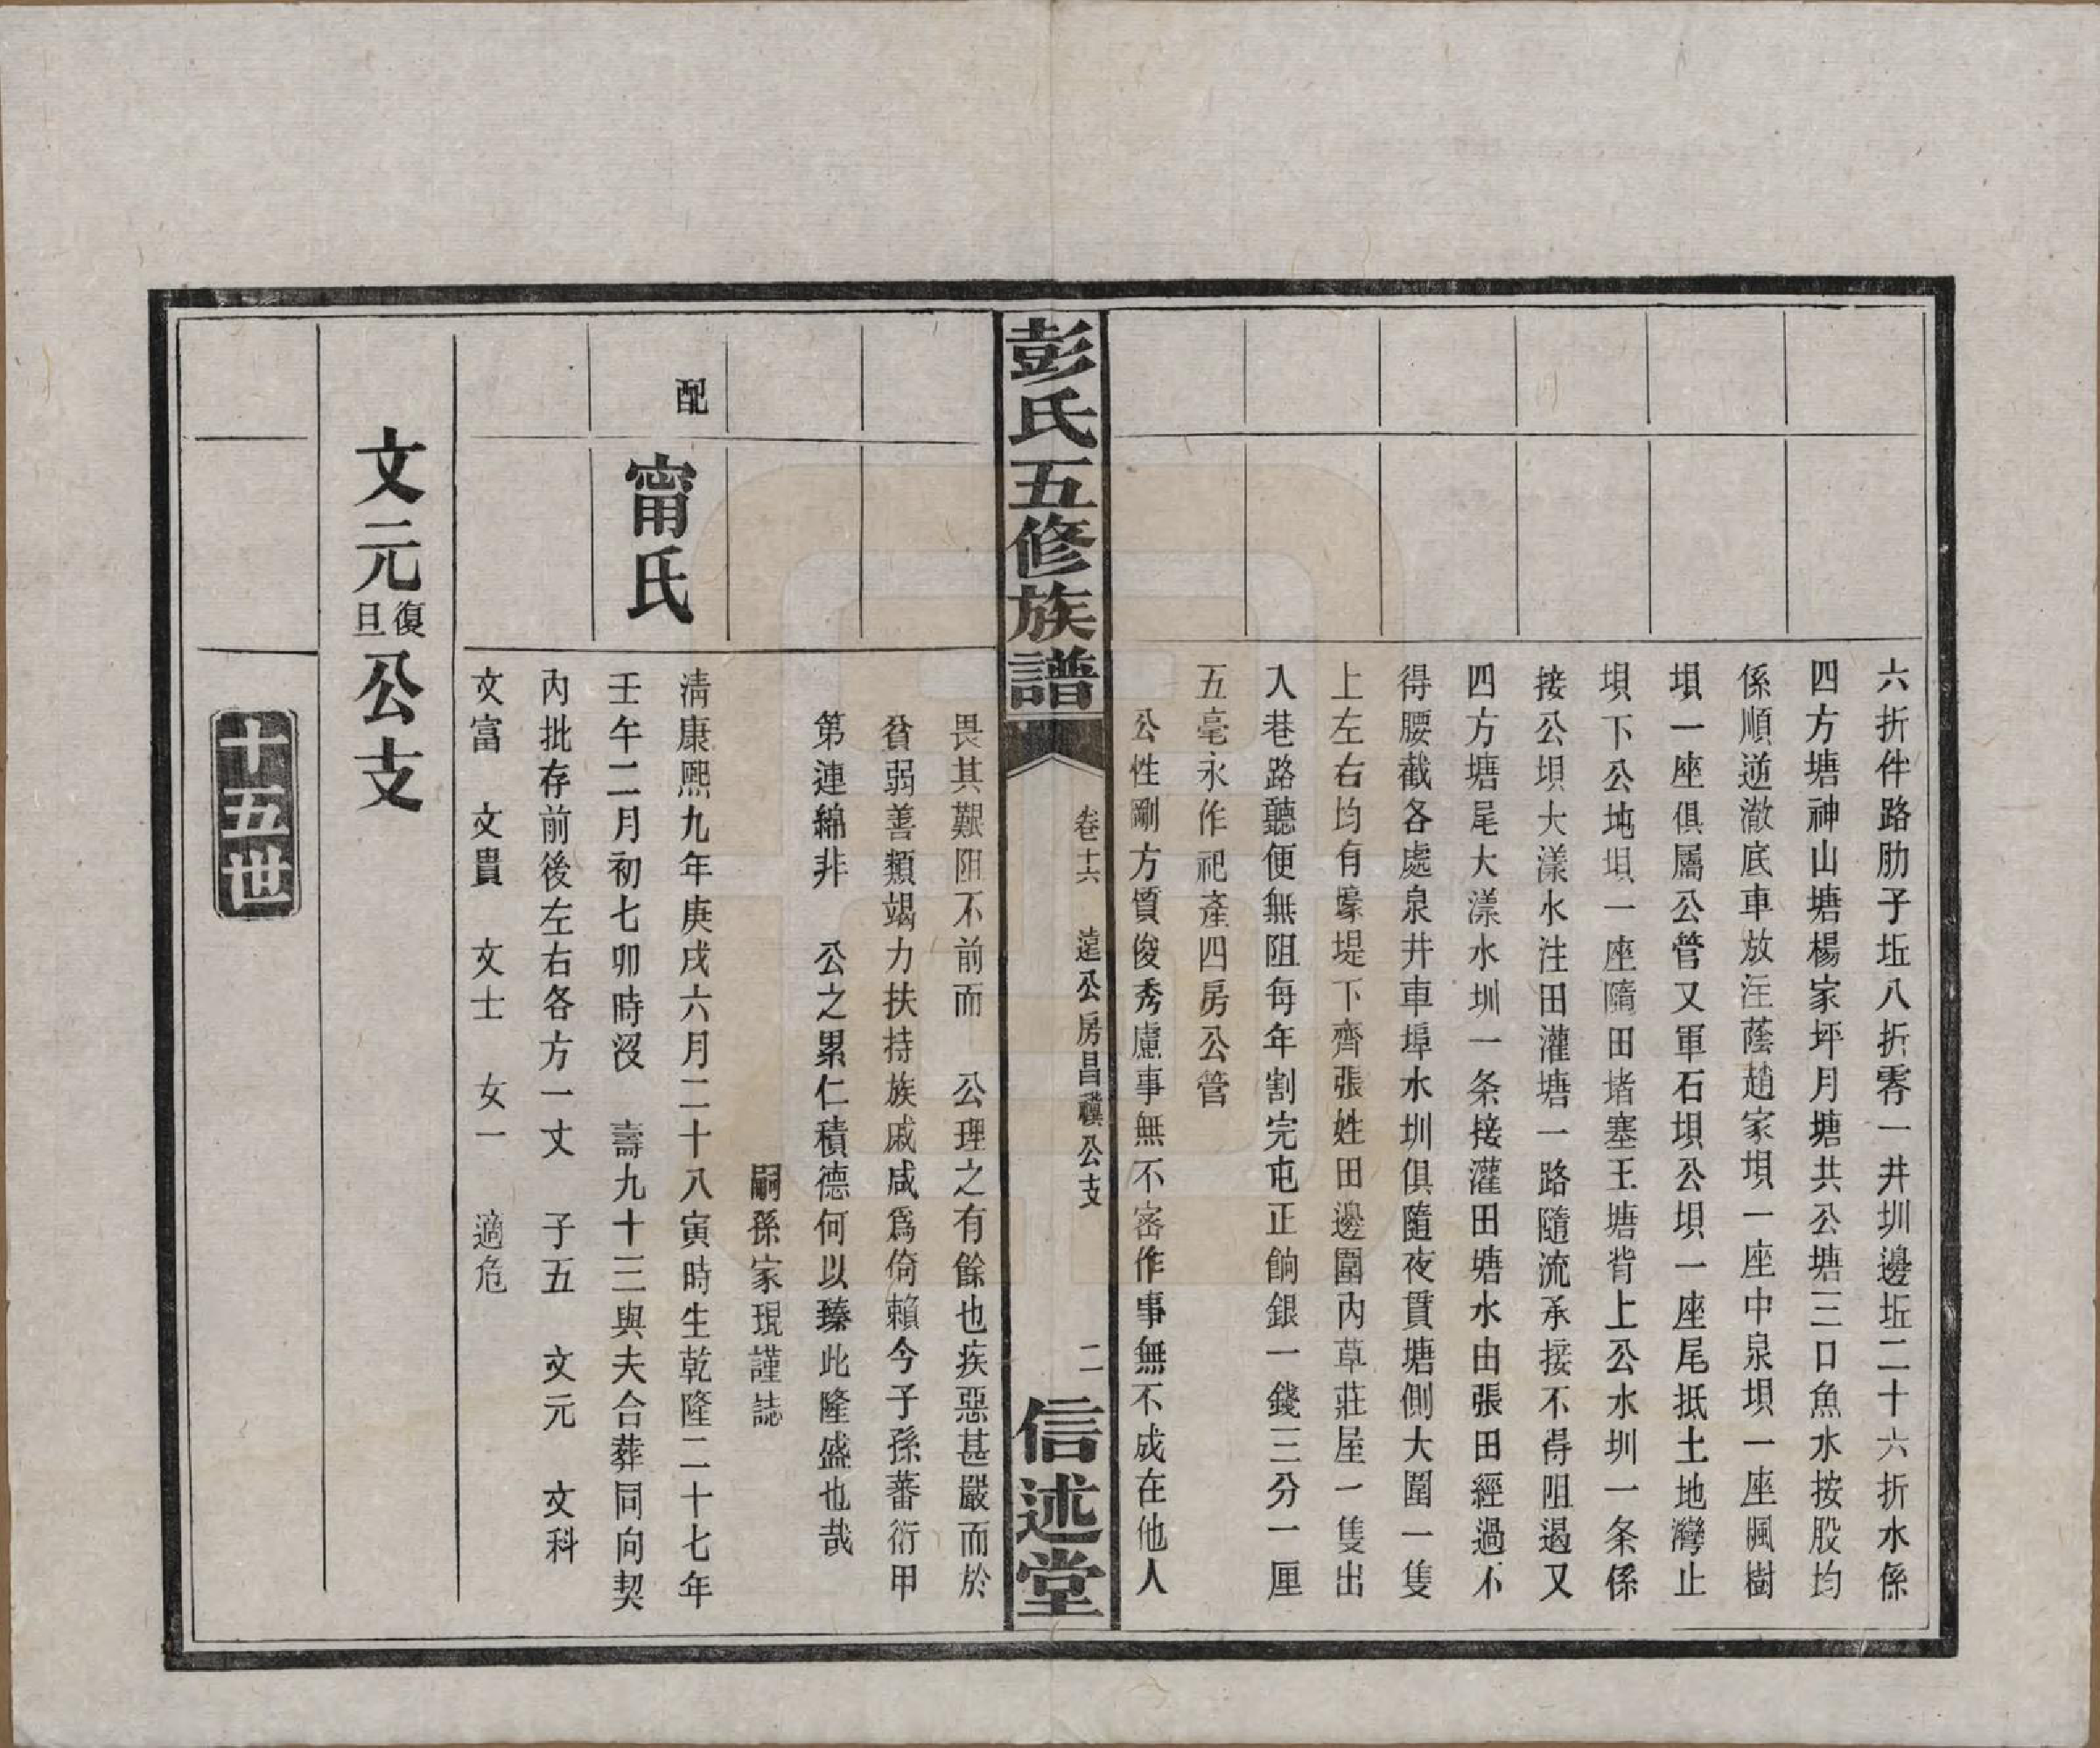 六折件路肋子坵八折零一井圳邊坵二十六折水係
四方塘神山塘楊家坪月塘共公塘三口魚水按股均
係順逆澈底車放汪蔭趙家垻一座中泉垻一座楓樹
垻一座俱屬公管又軍石垻公垻一座尾抵土地灣止
垻下公地垻一座隨田堵塞王塘背上公水圳一条係
接公垻大漾水注田灌塘一路隨流承接不得阻遏又
四方塘尾大漾水圳一条接灌田塘水由張田經過不
得腰截各處泉井車埠水圳俱隨夜貫塘側大圍一隻
上左右均有壕堤下齊張姓田邊圍內草莊屋一隻出
入巷路聽便無阻每年割完屯正餉銀一錢三分一厘
五毫永作祀產四房公管
公性剛方質俊秀慮事無不密作事無不成在他人
彭氏五修族譜
卷十六　遠公房昌禩公支
二
信述堂
畏其艱阻不前而　公理之有餘也疾惡甚嚴而於
貧弱善類竭力扶持族戚咸爲倚賴今子孫蕃衍甲
第連綿非　公之累仁積德何以臻此隆盛也哉
嗣孫家珼謹誌
配　甯氏
清康熙九年庚戌六月二十八寅時生乾隆二十七年
壬午二月初七卯時沒　壽九十三與夫合葬同向契
內批存前後左右各方一丈　子五　文元　文科
文富　文貴　文士　女一　適危
文元復旦公支
十五世